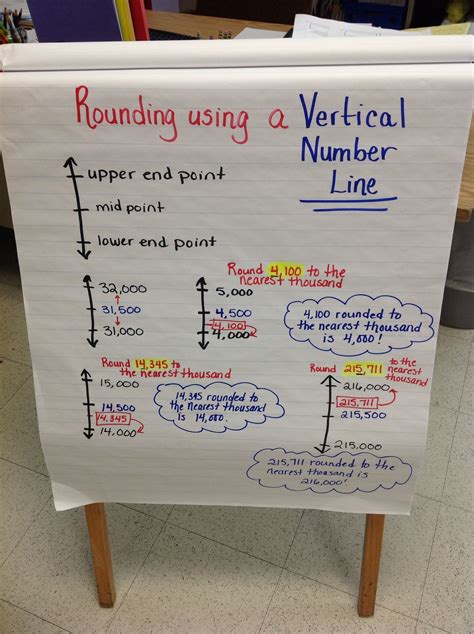 Rounding using a Vertical
Number
Line
upper end point
mid point
lower end point
32,000
31,500
31,000
Round 4,100 to the
nearest thousand
5,000
4,500
4,100
4,000
4,100 rounded to
the nearest thousand
is 4,000!
Round 14,345 to
the nearest thousand
15,000
14,500
14,345
14,000
14,345 rounded to
the nearest thousand
is 14,000.
Round 215,711 to the
nearest
thousand
216,000
215,711
215,500
215.000
215,711 rounded to the
nearest thousand is
216,000!